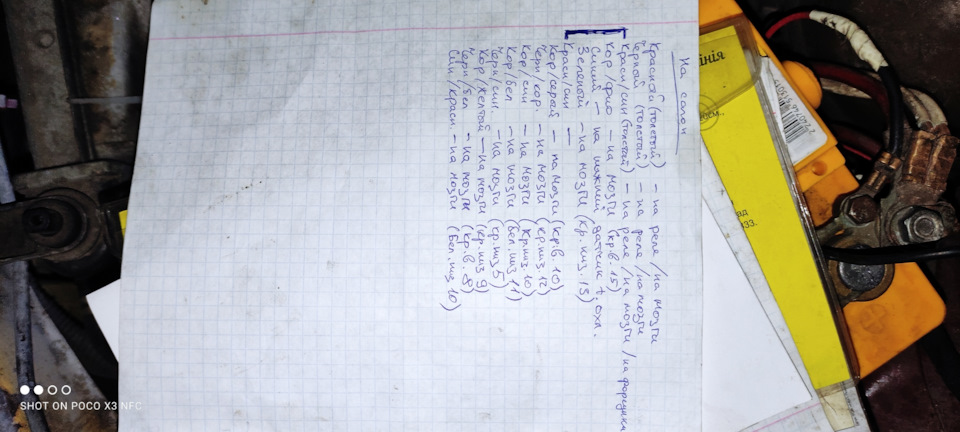 На салон
Красный (толстый) – на реле /на мозги
Чёрный (толстый) – на реле /на мозги
Красн/син (толстый) – на реле /на мозги /на форсунки
Кор/фио – на мозги (кр.в. 15)
Синий – на нижний датчик t. охл.
Зеленый – на мозги (кр. низ. 13)
Красн/син –
Кор/серый – на мозги (кр.в. 10)
Черн/кор – на мозги (кр.низ 12)
Кор/син – на мозги (кр.низ. 10)
Кор/бел – на мозги (бел.низ 11)
Черн/син. – на мозги (кр.низ 5)
Кор/желтый – на мозги (кр.низ 9)
Черн/бел – на мозги (кр.в. 8)
Син/красн. – на мозги (бел.низ 10)
інія
SHOT ON POCO X3 NFC